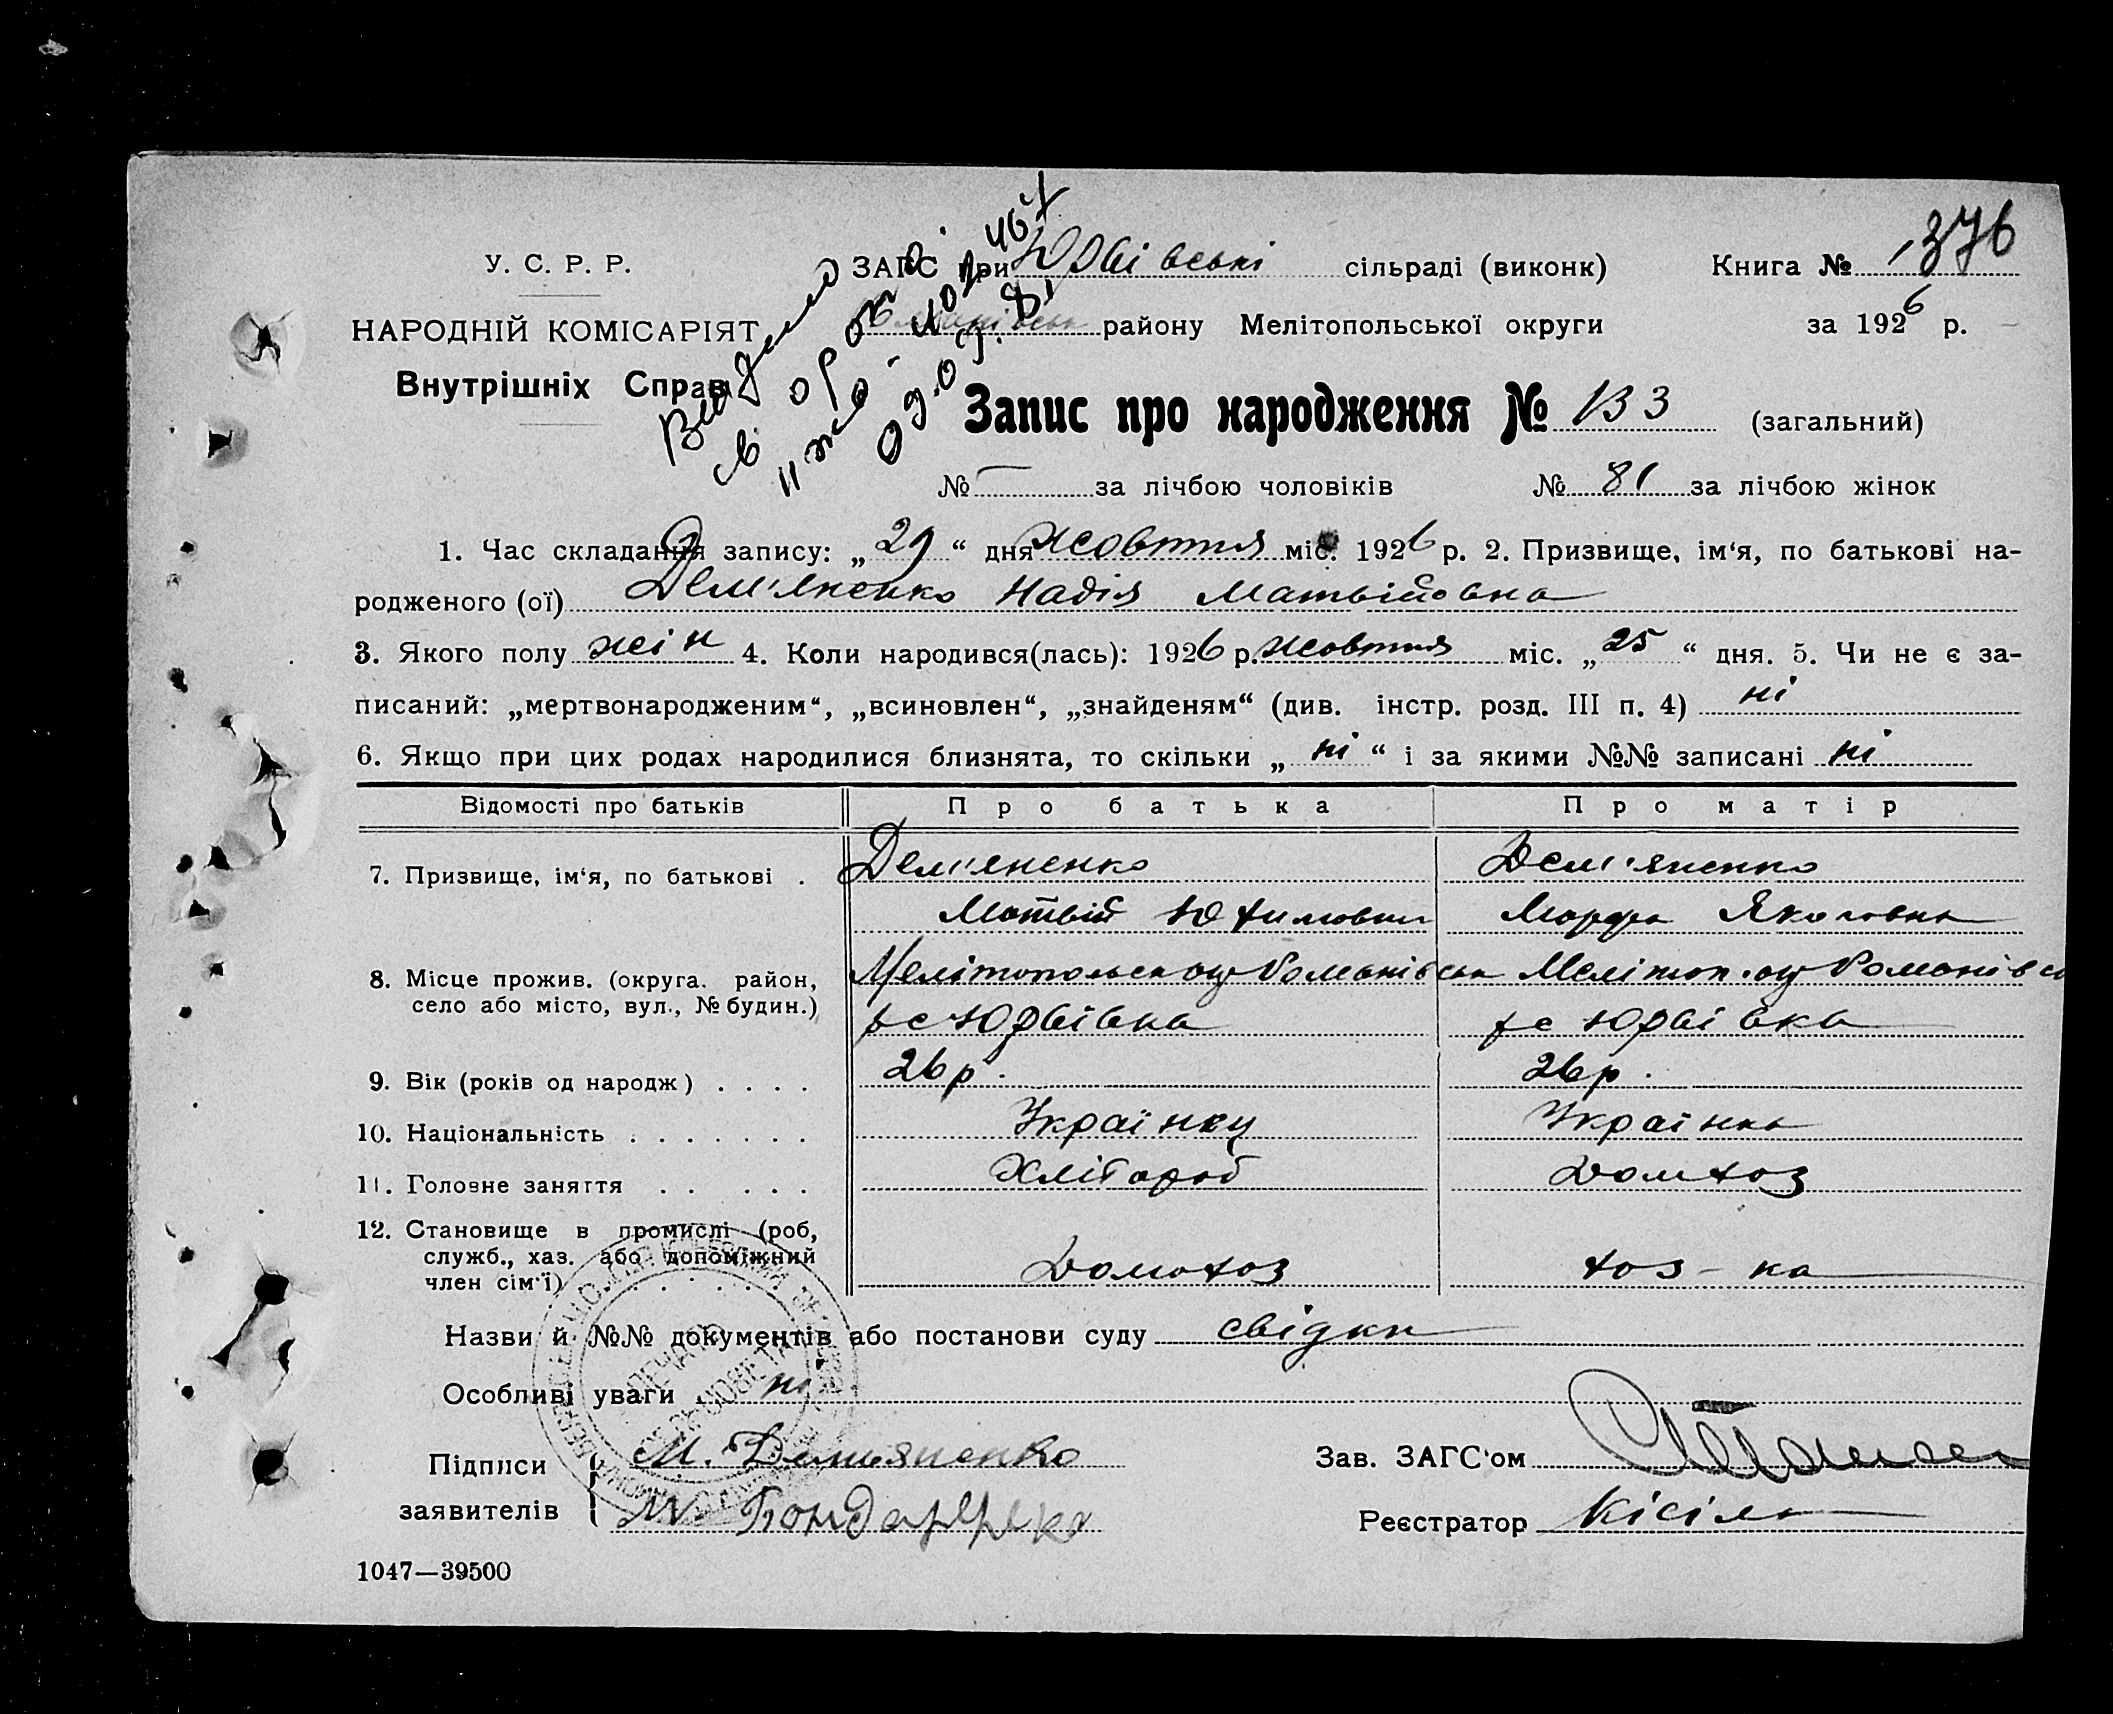 У. С. Р. Р.
ЗАГС при Юрвівські сільраді (виконк) Книга № 376
НАРОДНІЙ КОМІСАРІЯТ району Мелітопольської округи за 1926 р.
Внутрішніх Справ
Запис про народження № 133 (загальний)
№ — за лічбою чоловіків № 81 за лічбою жінок
1. Час складання запису: „29“ дня жовтня міс. 1926 р. 2. Призвище, ім‘я, по батькові на-
родженого (ої) Дем'яненко Надія Матвійовна
3. Якого полу жін 4. Коли народився(лась): 1926 р. жовтня міс. „25“ дня. 5. Чи не є за-
писаний: „мертвонародженим“, „всиновлен“, „знайденям“ (див. інстр. розд. III п. 4) ні
6. Якщо при цих родах народилися близнята, то скільки „ні“ і за якими №№ записані ні
Відомості про батьків Про батька Про матір
7. Призвище, ім‘я, по батькові . Дем'яненко Дем'яненко
Матвій Юхимович Марфа Якововна
8. Місце прожив. (округа. район, Мелітопольськ оц Романівськ Меліт оц Романівсь
село або місто, вул., № будин.) с Юрвівка с Юрвівка
9. Вік (років од народж) . . . . 26 р. 26 р.
10. Національність . . . . . . . Українец Українка
11. Головне заняття . . . . . Хлібороб Домхоз
12. Становище в промислі (роб,
служб., хаз. або допоміжний Домохоз хоз-ка
член сім‘ї) . . . .
Назви й №№ документів або постанови суду свідки
Особливі уваги ні
Підписи М. Демьяненко Зав. ЗАГС‘ом
заявителів М. Бондаренко Реєстратор Кісіль
1047—39500